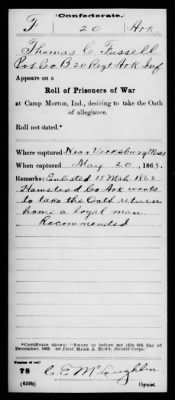 Confederate.
F 20 Ark.
Thomas C. Fussell
Pvt Co. B 20 Regt Ark Inf
Appears on a
Roll of Prisoners of War
at Camp Morton, Ind., desiring to take the Oath
of allegiance.
Roll not dated.*
Where captured Near Vicksburg Miss
When captured May 20, 1863.
Remarks: Enlisted 15 Mch 1862
Hempstead Co Ark wants
to take the Oath return
home a loyal man.
Recommended
*Certificate shows: "Sworn to before me this 9th day of
December, 1863.
Number of roll
78
(639b) C. E. McLaughlin
Copyist.